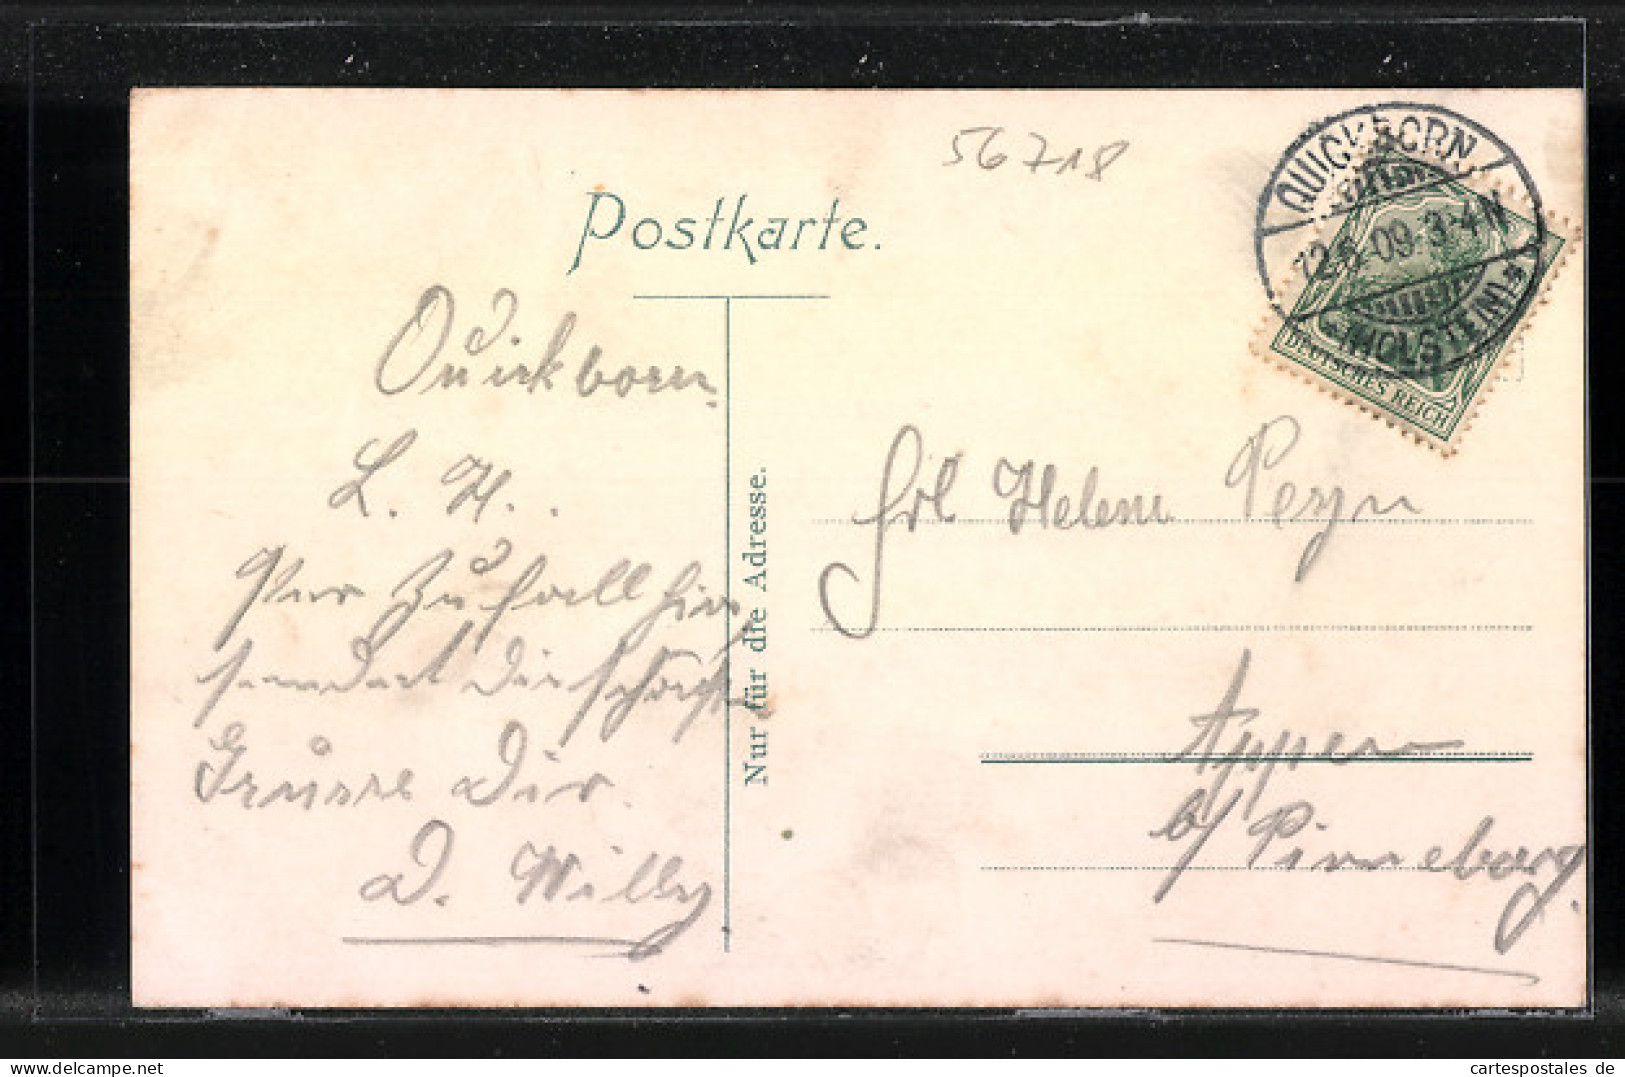 56718
Postkarte.
QUICKBORN
12.5.09. 3-4 N
* (HOLSTEIN) *
DEUTSCHES REICH
Quickborn.
L. H.
Per Zufall hier,
sendet die schönst
Grüsse Dir
D. Willy
Nur für die Adresse.
Frl Helene Pezyn
Appen
b/ Pinneberg.
www.cartespostales de